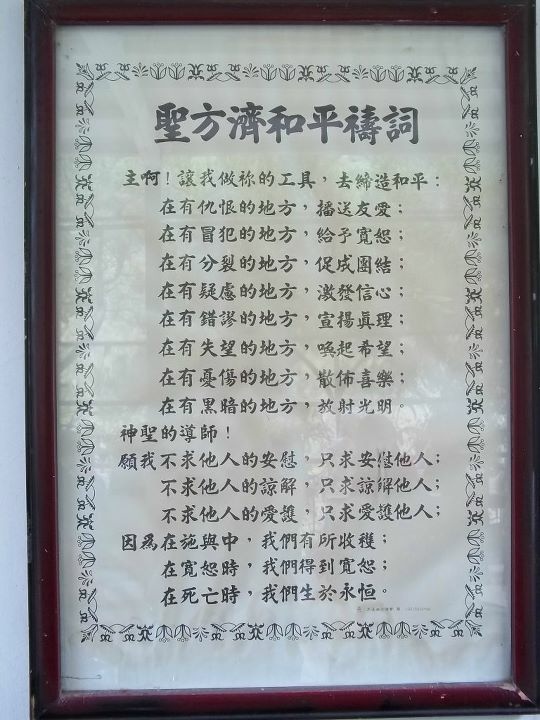 聖方濟和平禱詞
主啊！讓我做祢的工具，去締造和平：
在有仇恨的地方，播送友愛；
在有冒犯的地方，給予寬恕；
在有分裂的地方，促成團結；
在有疑慮的地方，激發信心；
在有錯謬的地方，宣揚眞理；
在有失望的地方，喚起希望；
在有憂傷的地方，散佈喜樂；
在有黑暗的地方，放射光明。
神聖的導師！
願我不求他人的安慰，只求安慰他人；
不求他人的諒解，只求諒解他人；
不求他人的愛護，只求愛護他人；
因為在施與中，我們有所收穫；
在寬恕時，我們得到寬恕；
在死亡時，我們生於永恒。